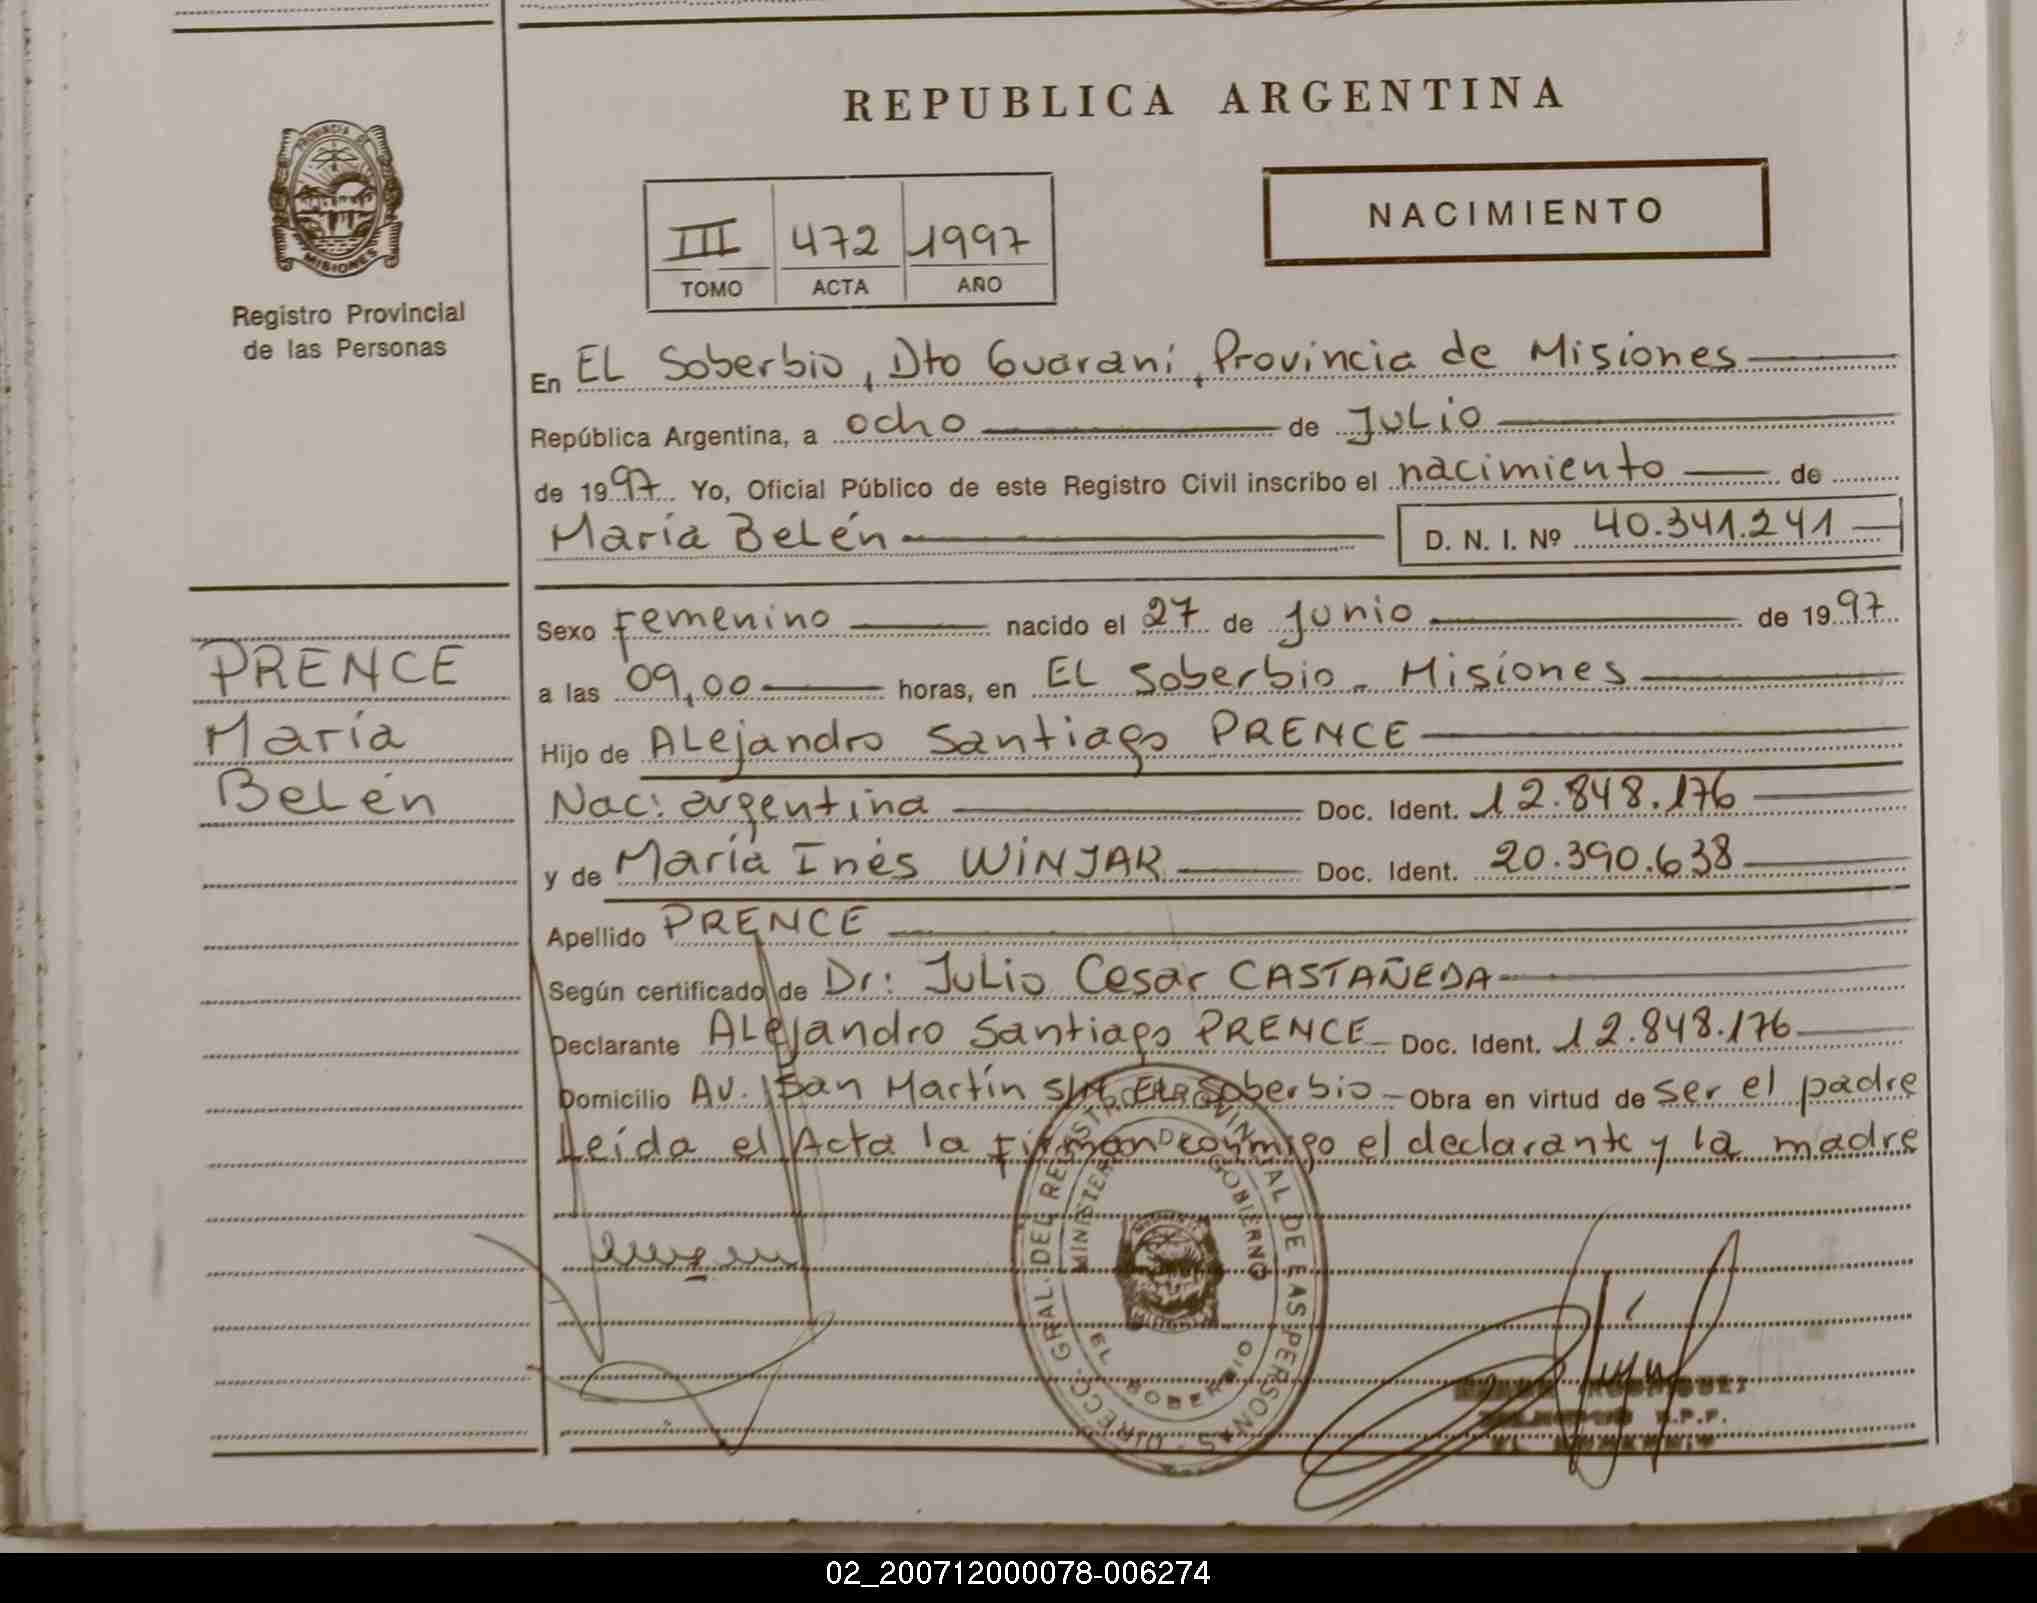 REPUBLICA ARGENTINA
PROVINCIA DE
MISIONES
Registro Provincial
de las Personas
III 472 1997
TOMO ACTA AÑO
NACIMIENTO
En EL Soberbio, Dto Guaraní, Provincia de Misiones
República Argentina, a ocho de Julio
de 1997 Yo, Oficial Público de este Registro Civil inscribo el nacimiento de
María Belén D. N. I. Nº 40.341.241
PRENCE
María
Belén
Sexo Femenino nacido el 27 de junio de 1997
a las 09,00 horas, en EL Soberbio - Misiones
Hijo de Alejandro Santiago PRENCE
Nac: argentina Doc. Ident. 12.848.176
y de María Inés WINJAR Doc. Ident. 20.390.638
Apellido PRENCE
Según certificado de Dr: Julio Cesar CASTAÑEDA
Declarante Alejandro Santiago PRENCE Doc. Ident. 12.848.176
Domicilio Av. San Martín s/n EL Soberbio - Obra en virtud de ser el padre
Leída el Acta la firman conmigo el declarante y la madre
DIRECC. GRAL. DEL REGISTRO PROVINCIAL DE LAS PERSONAS
MINISTERIO DE GOBIERNO
EL SOBERBIO
02_200712000078-006274